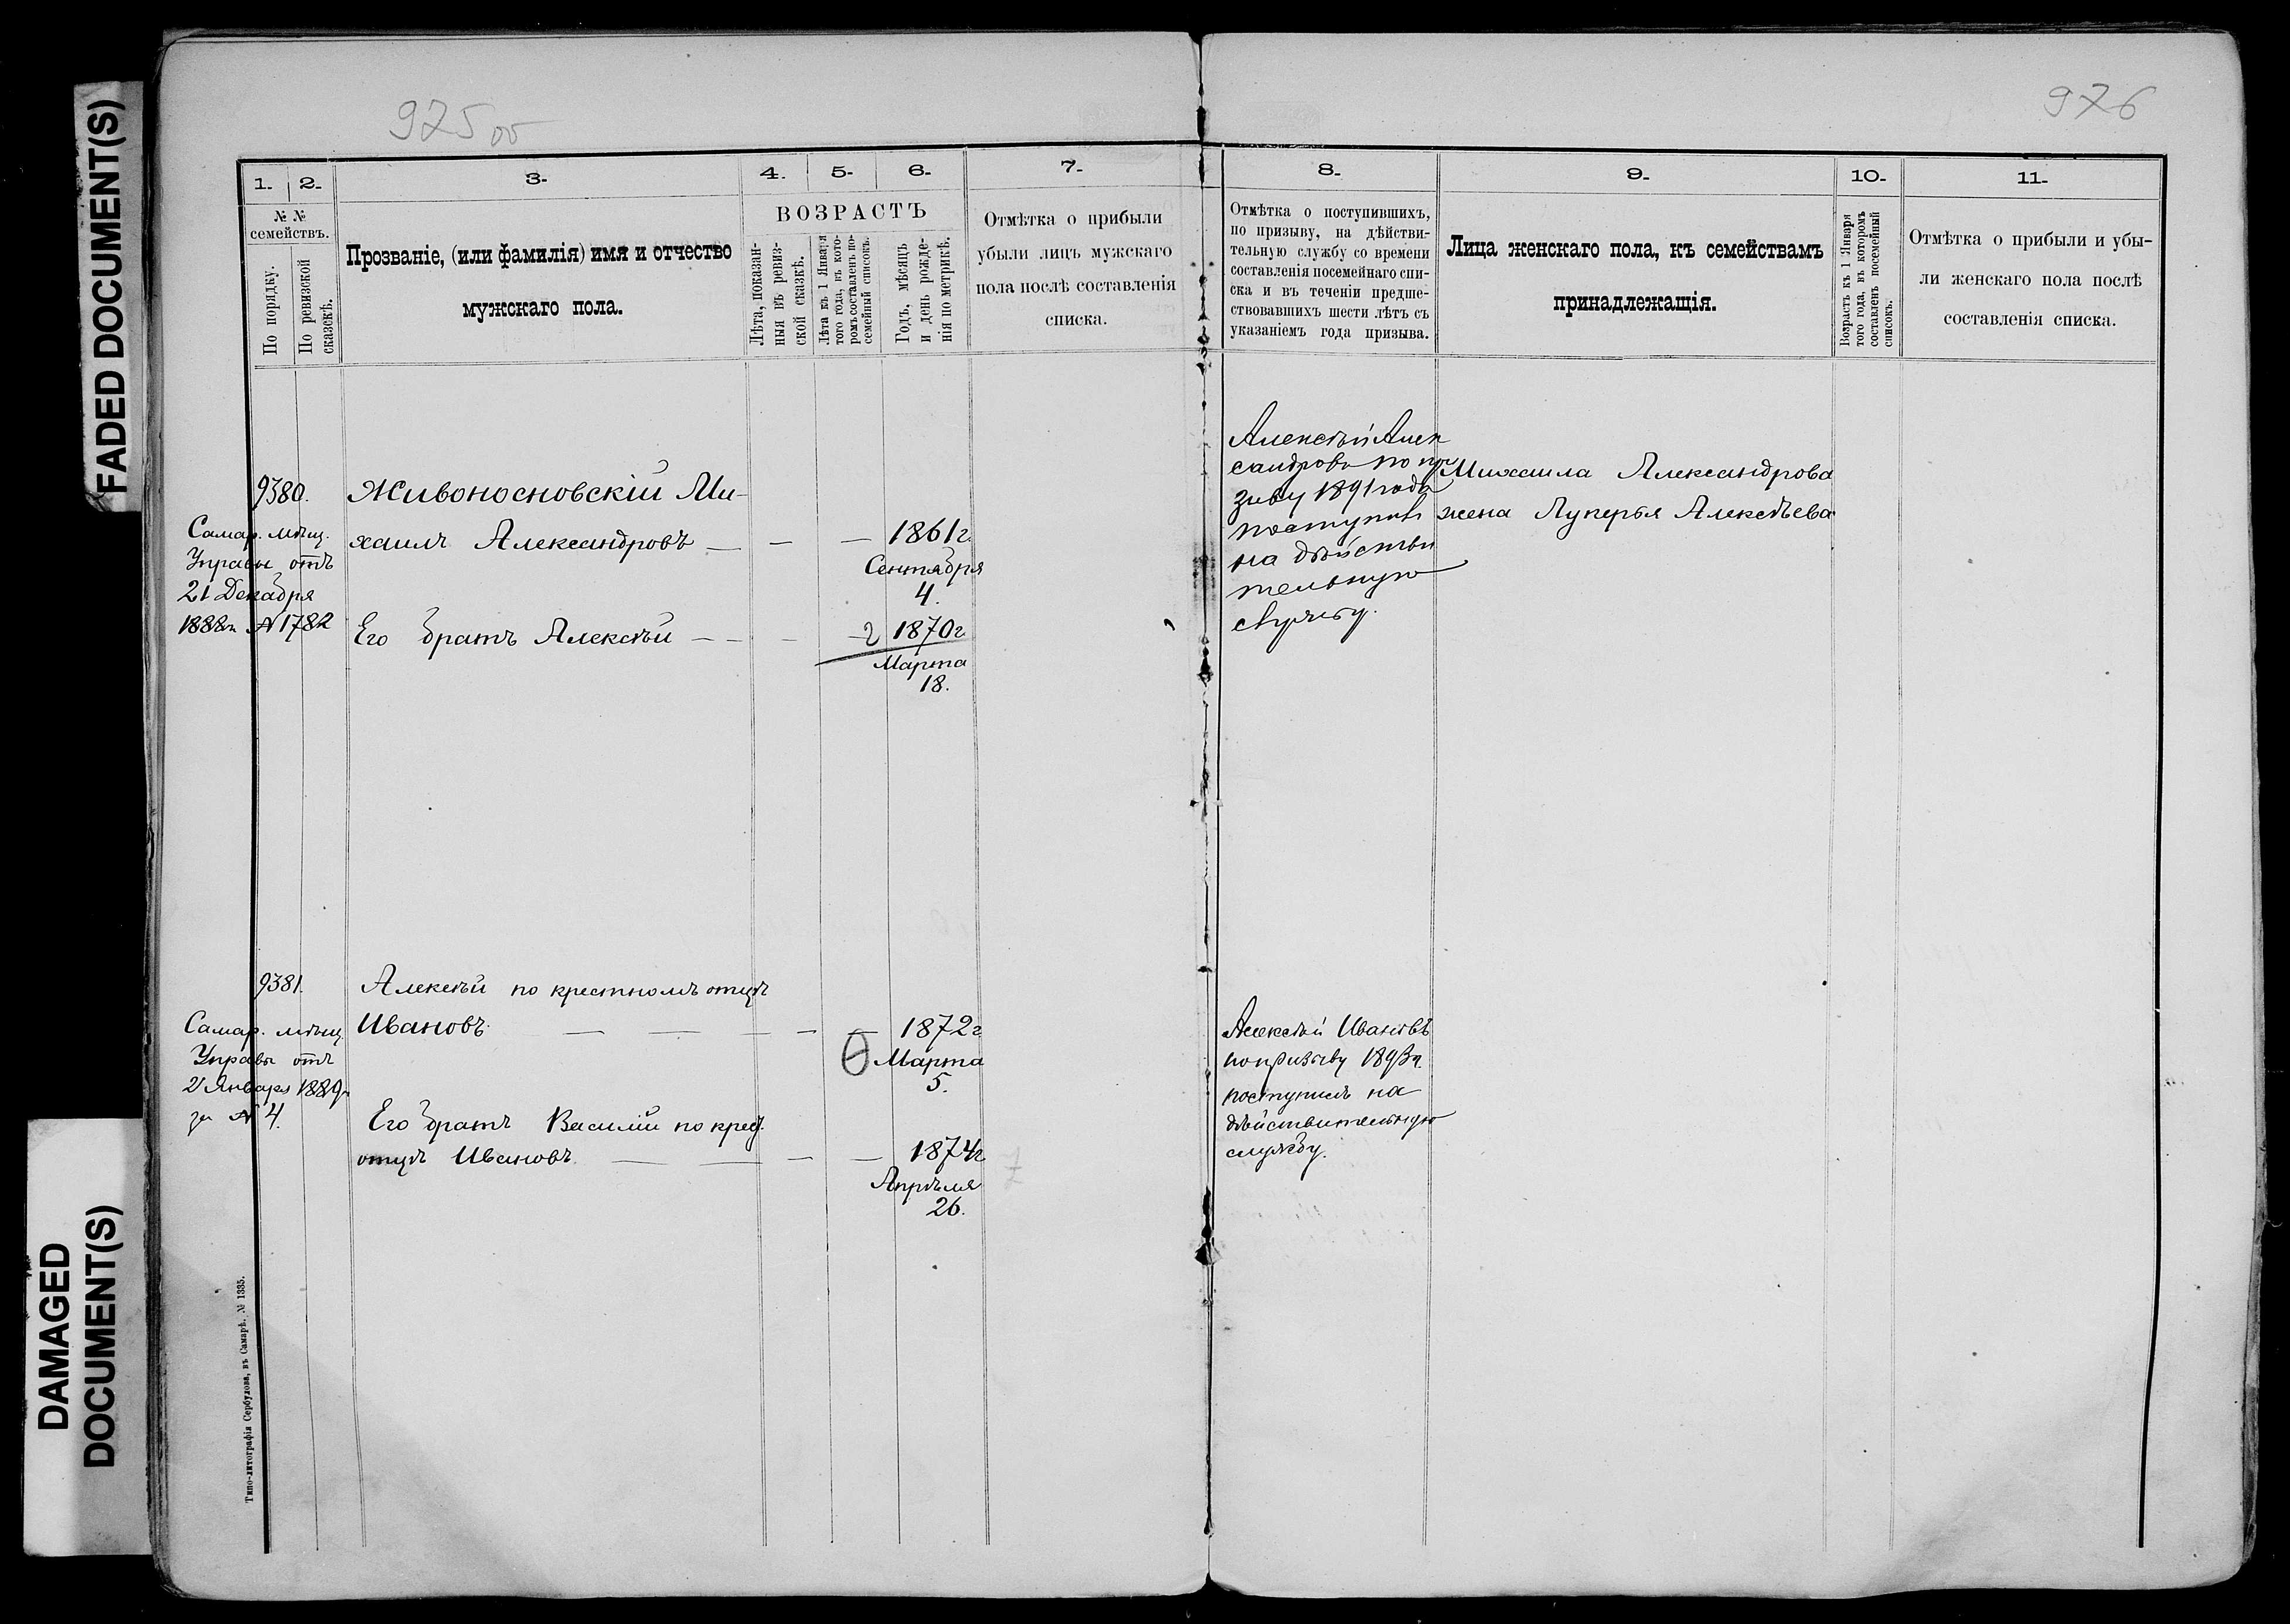 FADED DOCUMENT(S)
DAMAGED
DOCUMENT(S)
925 об
976
1. 2. 3. 4. 5. 6. 7.
№ №
семействъ.
По порядку.
По ревизской
сказскѣ.
Прозваніе, (или фамилія) имя и отчество
мужскаго пола.
ВОЗРАСТЪ
Лѣта, показан-
ныя въ ревиз-
ской сказкѣ.
Лѣта къ 1 Января
того года, въ кото-
ромъ составленъ по-
семейный списокъ.
Годъ, мѣсяцъ
и день рожде-
нія по метрикѣ.
Отмѣтка о прибыли
убыли лицъ мужскаго
пола послѣ составленія
списка.
9380.
Самар. мѣщ.
Управы отъ
21 Декабря
1888г № 1782
Живоносновскій Ми-
хаилъ Александровъ — — —
1861г.
Сентября
4.
Его братъ Алексѣй — — — —
2 1870г
Марта
18.
9381.
Самар. мѣщ.
Управы отъ
2 Января 1889г
за № 4.
Алексѣй по крестномъ отцѣ
Ивановъ. — — — — —
1872г
Марта
5.
Его братъ Василій по крес.
отцѣ Ивановъ — — — —
1874г
Апрѣля
26.
Типо-литографія Сербулова, въ Самарѣ. № 1335.
8. 9. 10. 11.
Отмѣтка о поступившихъ,
по призыву, на дѣйстви-
тельную службу со времени
составленія посемейнаго спи-
ска и въ теченіи предше-
ствовавшихъ шести лѣтъ съ
указаніемъ года призыва.
Лица женскаго пола, къ семействамъ
принадлежащія.
Возрастъ къ 1 Января
того года, въ которомъ
составленъ посемейный
списокъ.
Отмѣтка о прибыли и убы-
ли женскаго пола послѣ
составленія списка.
Алексѣй Алек
сандровъ по при
зыву 1891 года
поступилъ
на дѣйстви
тельную
службу.
Михаила Александрова
жена Лукерья Алексѣева
Алексѣй Ивановъ
по призыву 1893г.
поступилъ на
дѣйствительную
службу.